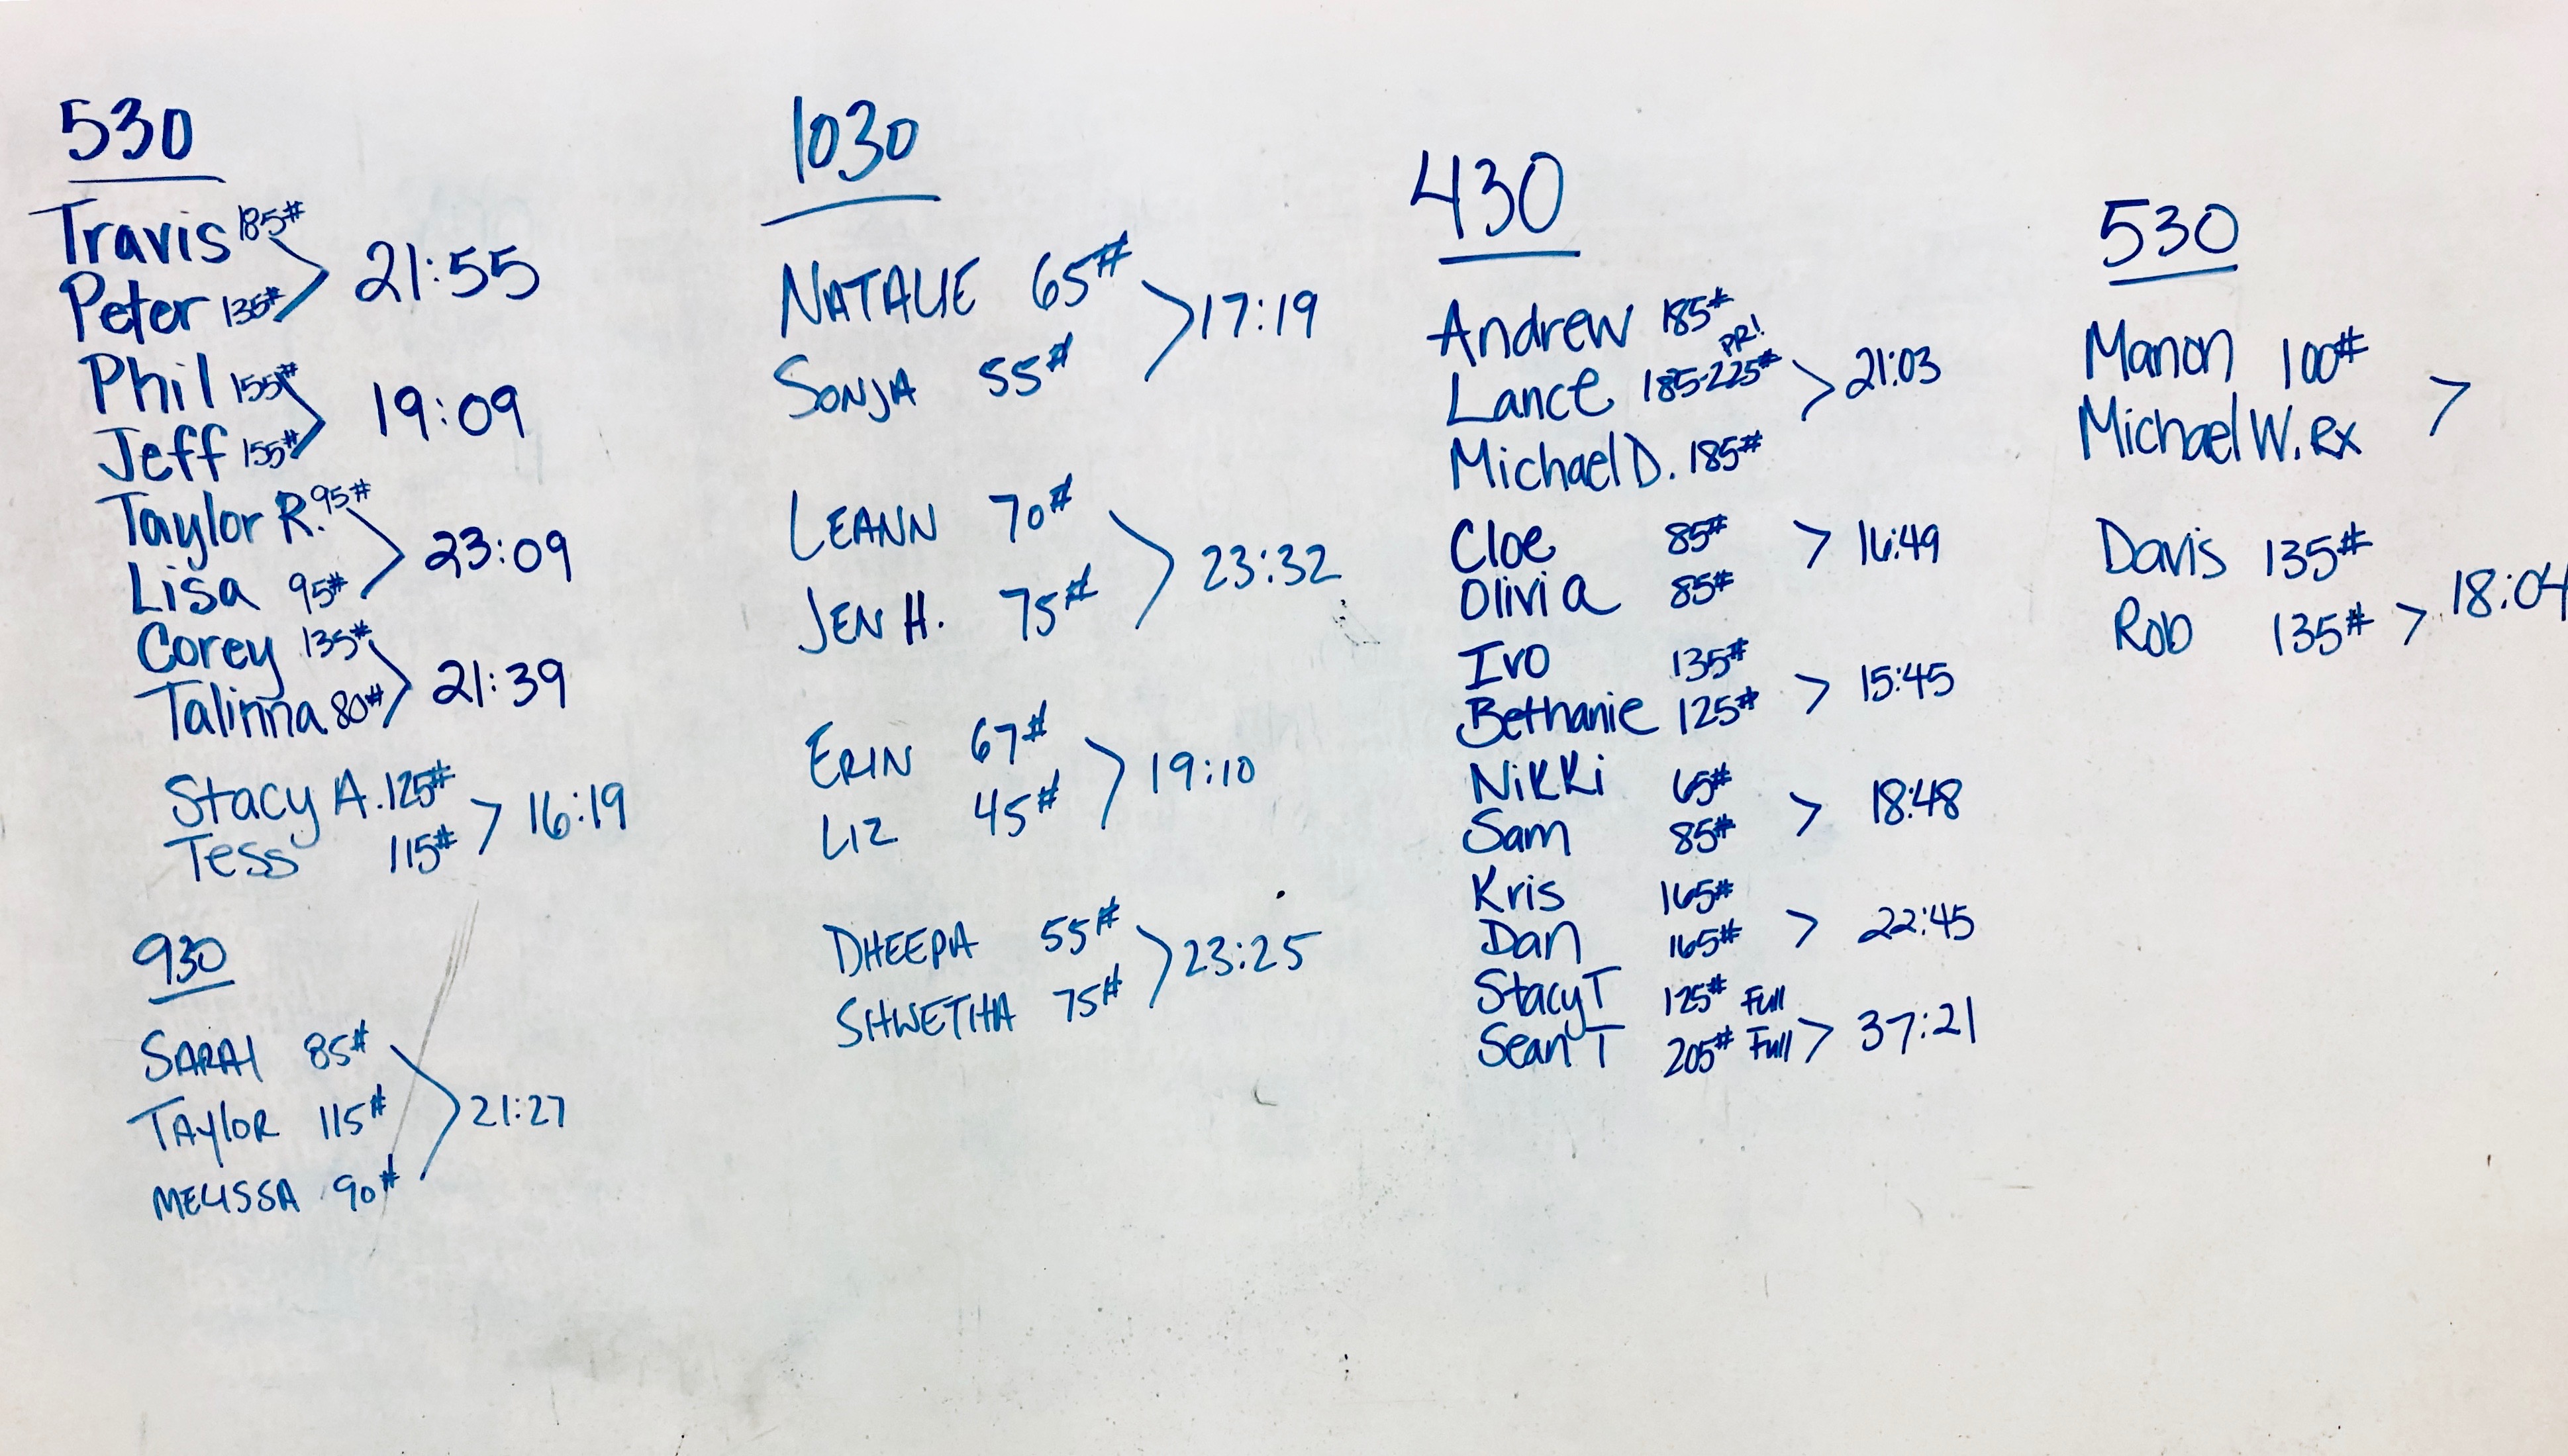 530
Travis 185#
Peter 135# > 21:55
Phil 155#
Jeff 155# > 19:09
Taylor R. 95#
Lisa 95# > 23:09
Corey 135#
Talinna 80# > 21:39
Stacy A. 125#
Tess 115# > 16:19
930
SARAI 85#
TAYLOR 115# > 21:27
MELISSA 90#
1030
NATALIE 65#
SONJA 55# > 17:19
LEANN 70#
JEN H. 75# > 23:32
ERIN 67#
LIZ 45# > 19:10
DHEEPA 55#
SHWETHA 75# > 23:25
430
Andrew 185#
PR!
Lance 185-225# > 21:03
Michael D. 185#
Cloe 85# > 16:49
Olivia 85#
Ivo 135#
Bethanie 125# > 15:45
Nikki 65#
Sam 85# > 18:48
Kris 165#
Dan 165# > 22:45
Stacy T 125# Full
Sean T 205# Full > 37:21
530
Manon 100# >
Michael W. Rx
Davis 135#
Rob 135# > 18:04